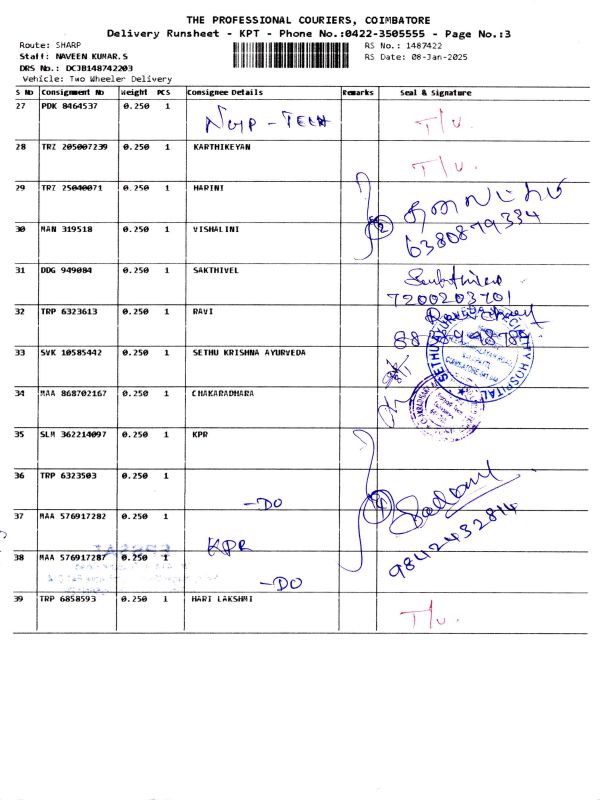 THE PROFESSIONAL COURIERS, COIMBATORE
Delivery Runsheet - KPT - Phone No.:0422-3505555 - Page No.:3
Route: SHARP
RS No.: 1487422
Staff: NAVEEN KUMAR.S
RS Date: 08-Jan-2025
DRS No.: DCJB148742203
Vehicle: Two Wheeler Delivery
S No Consignment No Weight PCS Consignee Details Remarks Seal & Signature
27 PDK 8464537 0.250 1 T/U.
28 TRZ 205007239 0.250 1 KARTHIKEYAN T/U.
29 TRZ 25040071 0.250 1 HARINI
30 MAN 319518 0.250 1 VISHALINI 2 6380879334
31 DDG 949084 0.250 1 SAKTHIVEL
7200203701
32 TRP 6323613 0.250 1 RAVI
33 SVK 10585442 0.250 1 SETHU KRISHNA AYURVEDA
34 MAA 868702167 0.250 1 CHAKARADHARA
35 SLM 362214097 0.250 1 KPR
36 TRP 6323503 0.250 1 -DO 4
37 MAA 576917282 0.250 1 KPR 9842432814
38 MAA 576917287 0.250 1 -DO
39 TRP 6858593 0.250 1 HARI LAKSHMI T/U.